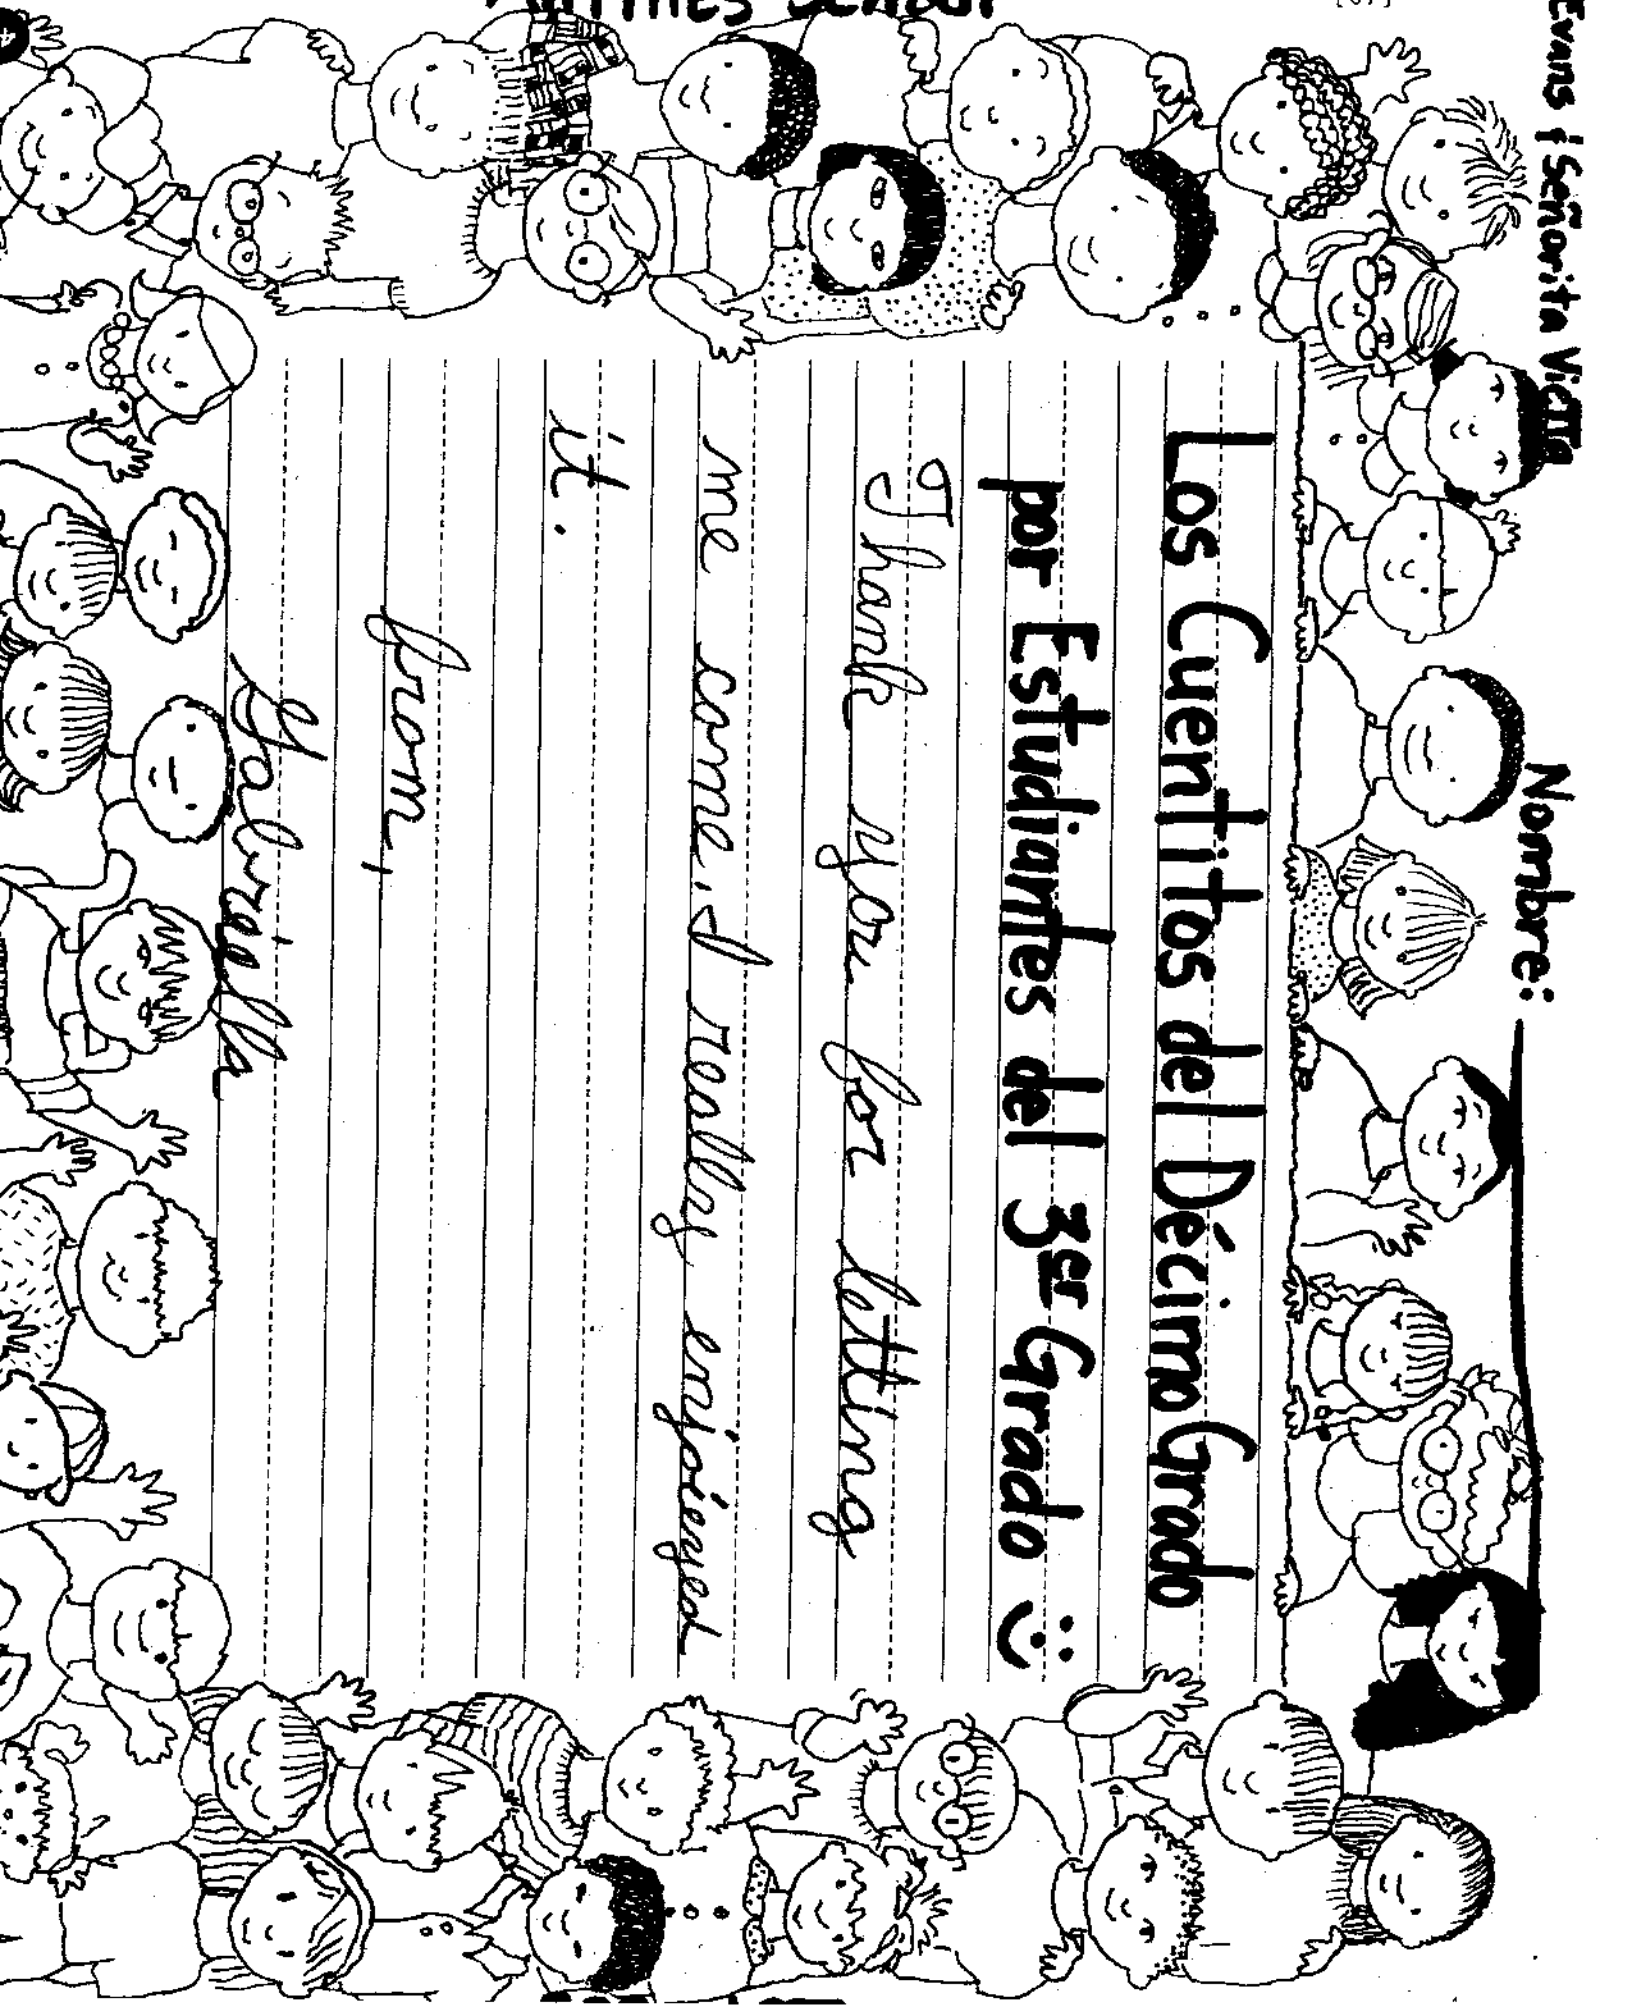 Evans & Señorita
Nombre:
Los Cuentitos del Décimo Grado
por Estudiantes del 3er Grado :)
Thank you for letting
me come. I really enjoieyed
it.
from,